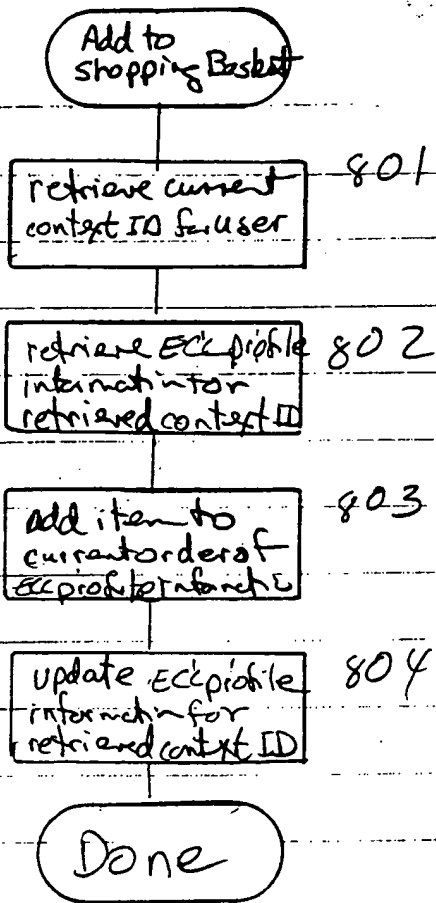 Add to
Shopping Basket
retrieve current
context ID for user
801
retrieve ECC profile
information for
retrieved context ID
802
add item to
current order of
ECC profile information
803
update ECC profile
information for
retrieved context ID
804
Done